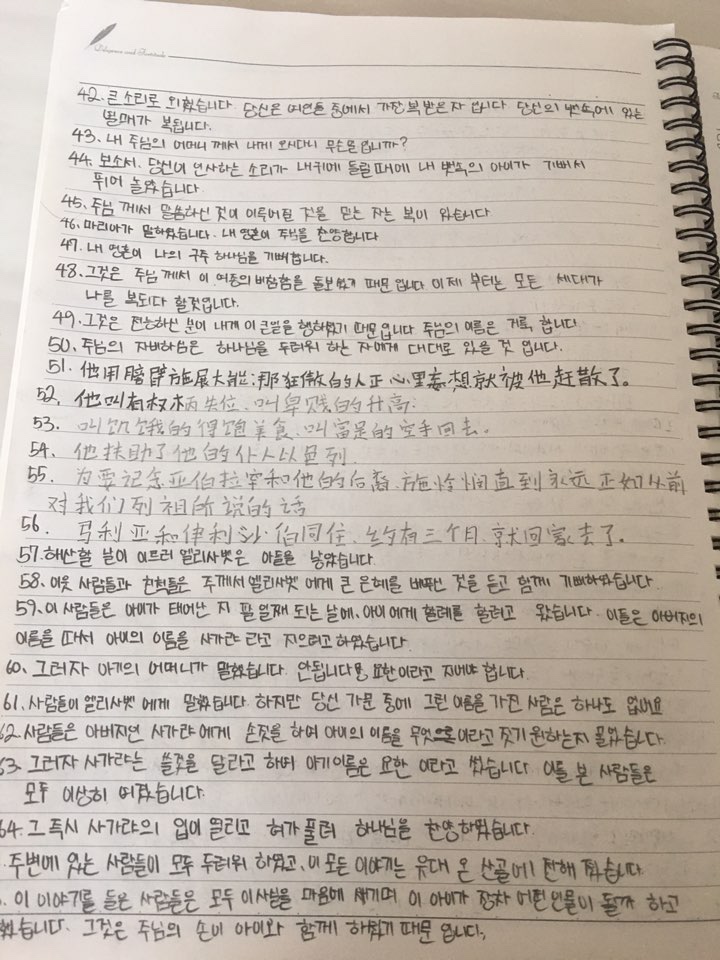 Diligence and Fortitude
42. 큰 소리로 외쳤습니다. 당신은 여인들 중에서 가장 복 받은 자 입니다 당신의 뱃속에 있는
열매가 복됩니다.
43. 내 주님의 어머니 께서 나에게 오시다니 무슨일 입니까?
44. 보소서. 당신이 인사하는 소리가 내 귀에 들릴 때에 내 뱃속의 아이가 기뻐서
뛰어 놀았습니다.
45. 주님 께서 말씀하신 것이 이루어질 것을 믿는 자는 복이 있습니다
46. 마리아가 말하였습니다. 내 영혼이 주님을 찬양합니다
47. 내 영혼이 나의 구주 하나님을 기뻐합니다.
48. 그것은 주님 께서 이 여종의 비참함을 돌보셨기 때문 입니다 이제 부터는 모든 세대가
나를 복되다 할것입니다.
49. 그것은 전능하신 분이 내게 이 큰일을 행하셨기 때문입니다. 주님의 이름은 거룩 합니다
50. 주님의 자비하심은 하나님을 두려워 하는 자에게 대대로 있을 것 입니다.
51. 他用膀臂施展大能; 那狂傲的人正心里妄想就被他赶散了。
52. 他叫有权柄失位、叫卑贱的升高.
53. 叫饥饿的得饱美食、叫富足的空手回去。
54. 他扶助了他的仆人以色列.
55. 为要记念亚伯拉罕和他的后裔、施怜悯直到永远 正如从前
对我们列祖所说的话
56. 马利亚和伊利沙伯同住、约有三个月、就回家去了。
57. 해산할 날이 이르러 엘리사벳은 아들을 낳았습니다.
58. 이웃 사람들과 친척들은 주께서 엘리사벳 에게 큰 은혜를 베푸신 것을 듣고 함께 기뻐하였습니다.
59. 이 사람들은 아이가 태어난 지 팔 일째 되는 날에, 아이 에게 할례를 하려고 왔습니다. 이들은 아버지의
이름을 따서 아이의 이름을 사가랴 라고 지으려고 하였습니다.
60. 그러자 아기의 어머니가 말했습니다. 안됩니다 요한 이라고 지어야 합니다.
61. 사람들이 엘리사벳 에게 말했습니다. 하지만 당신 가문 중에 그런 이름을 가진 사람은 하나도 없어요
62. 사람들은 아버지인 사가랴 에게 손짓을 하여 아이의 이름을 무엇 이라고 짓기 원하는지 물었습니다.
63. 그러자 사가랴는 쓸것을 달라고 하여 아기이름은 요한 이라고 썼습니다. 이를 본 사람들은
모두 이상히 여겼습니다.
64. 그 즉시 사가랴의 입이 열리고 혀가 풀려 하나님을 찬양하였습니다.
. 주변에 있는 사람들이 모두 두려워 하였고, 이 모든 이야기는 유대 온 산골에 전해 졌습니다.
. 이 이야기를 들은 사람들은 모두 이사실을 마음에 새기며 이 아이가 장차 어떤 인물이 될까 하고
했습니다. 그것은 주님의 손이 아이와 함께 하셨기 때문 입니다.